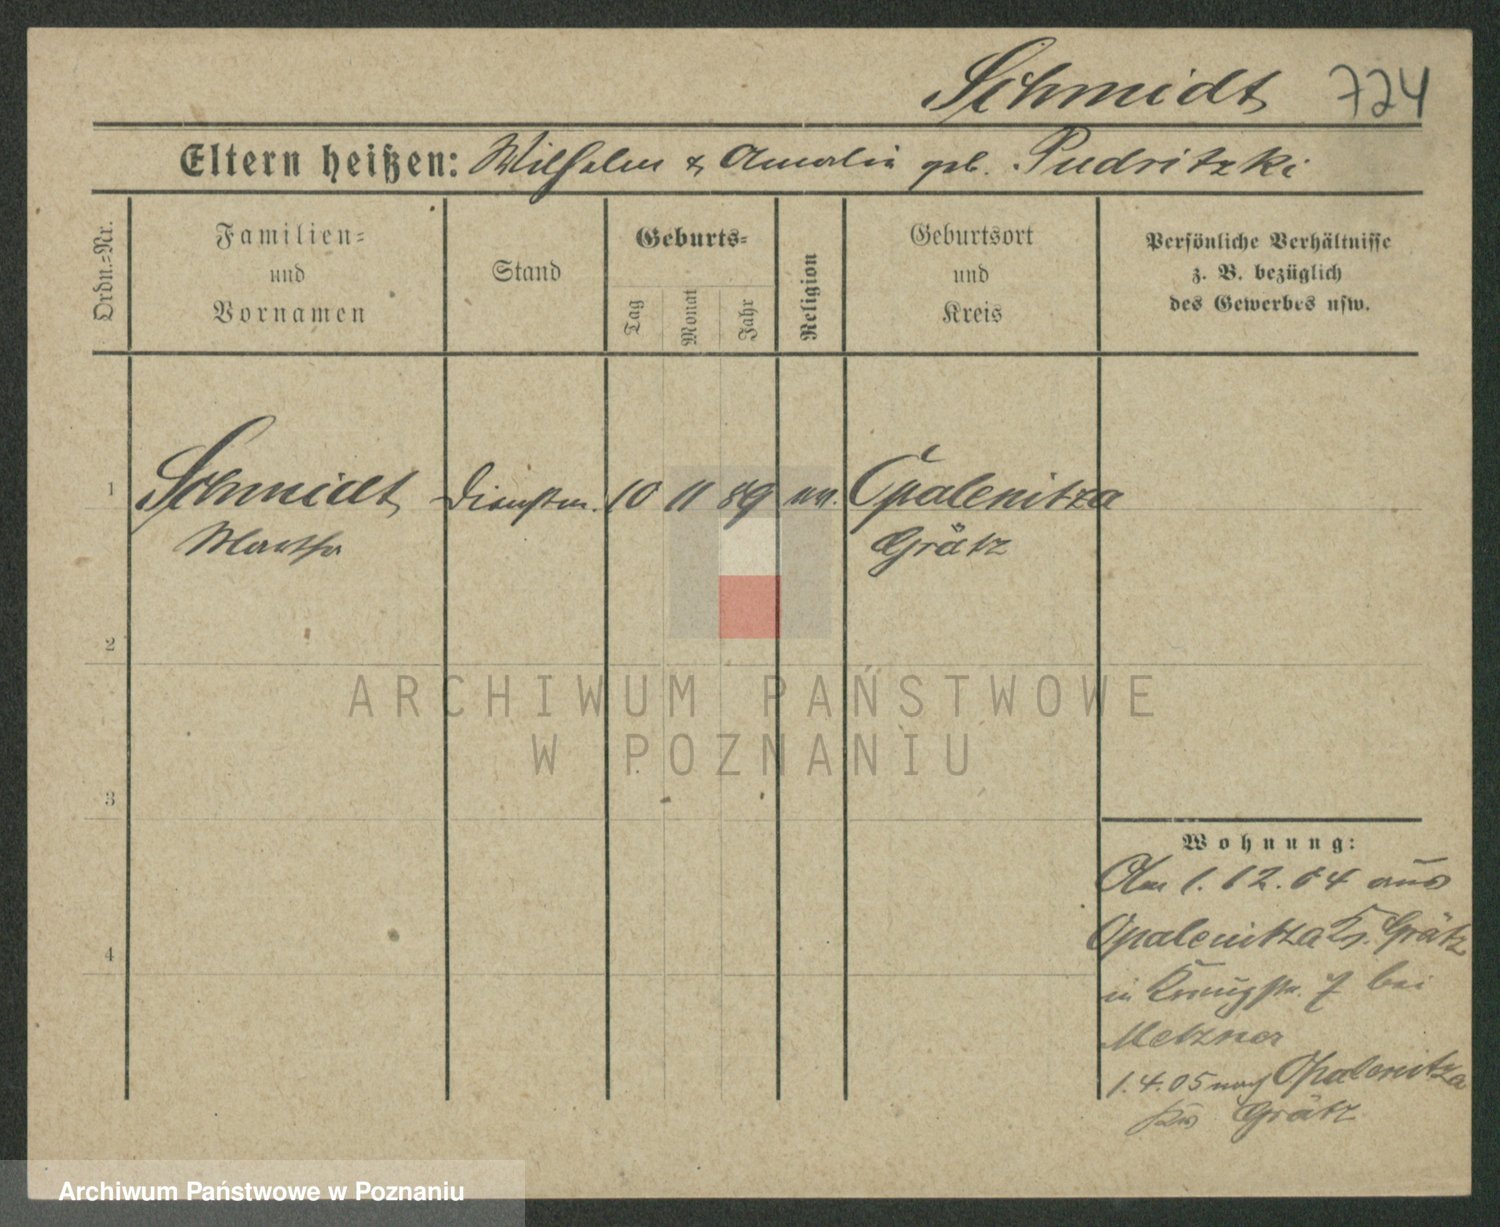 Schmidt 724
Eltern heißen: Wilhelm & Amalie geb. Pudritzki
Ordn.-Nr.
Familien- und Vornamen
Stand
Geburts-
Tag
Monat
Jahr
Religion
Geburtsort und Kreis
Persönliche Verhältnisse
z. B. bezüglich
des Gewerbes usw.
1 Schmidt Dienstm. 10 11 89 Opalenitza
Martha Grätz
2
ARCHIWUM PAŃSTWOWE
W POZNANIU
3
Wohnung:
Am 1.12.04 aus
Opalenitza Kr. Grätz
4
in 7 bei
Metzner
1.4.05 nach Opalenitza
Grätz
Archiwum Państwowe w Poznaniu